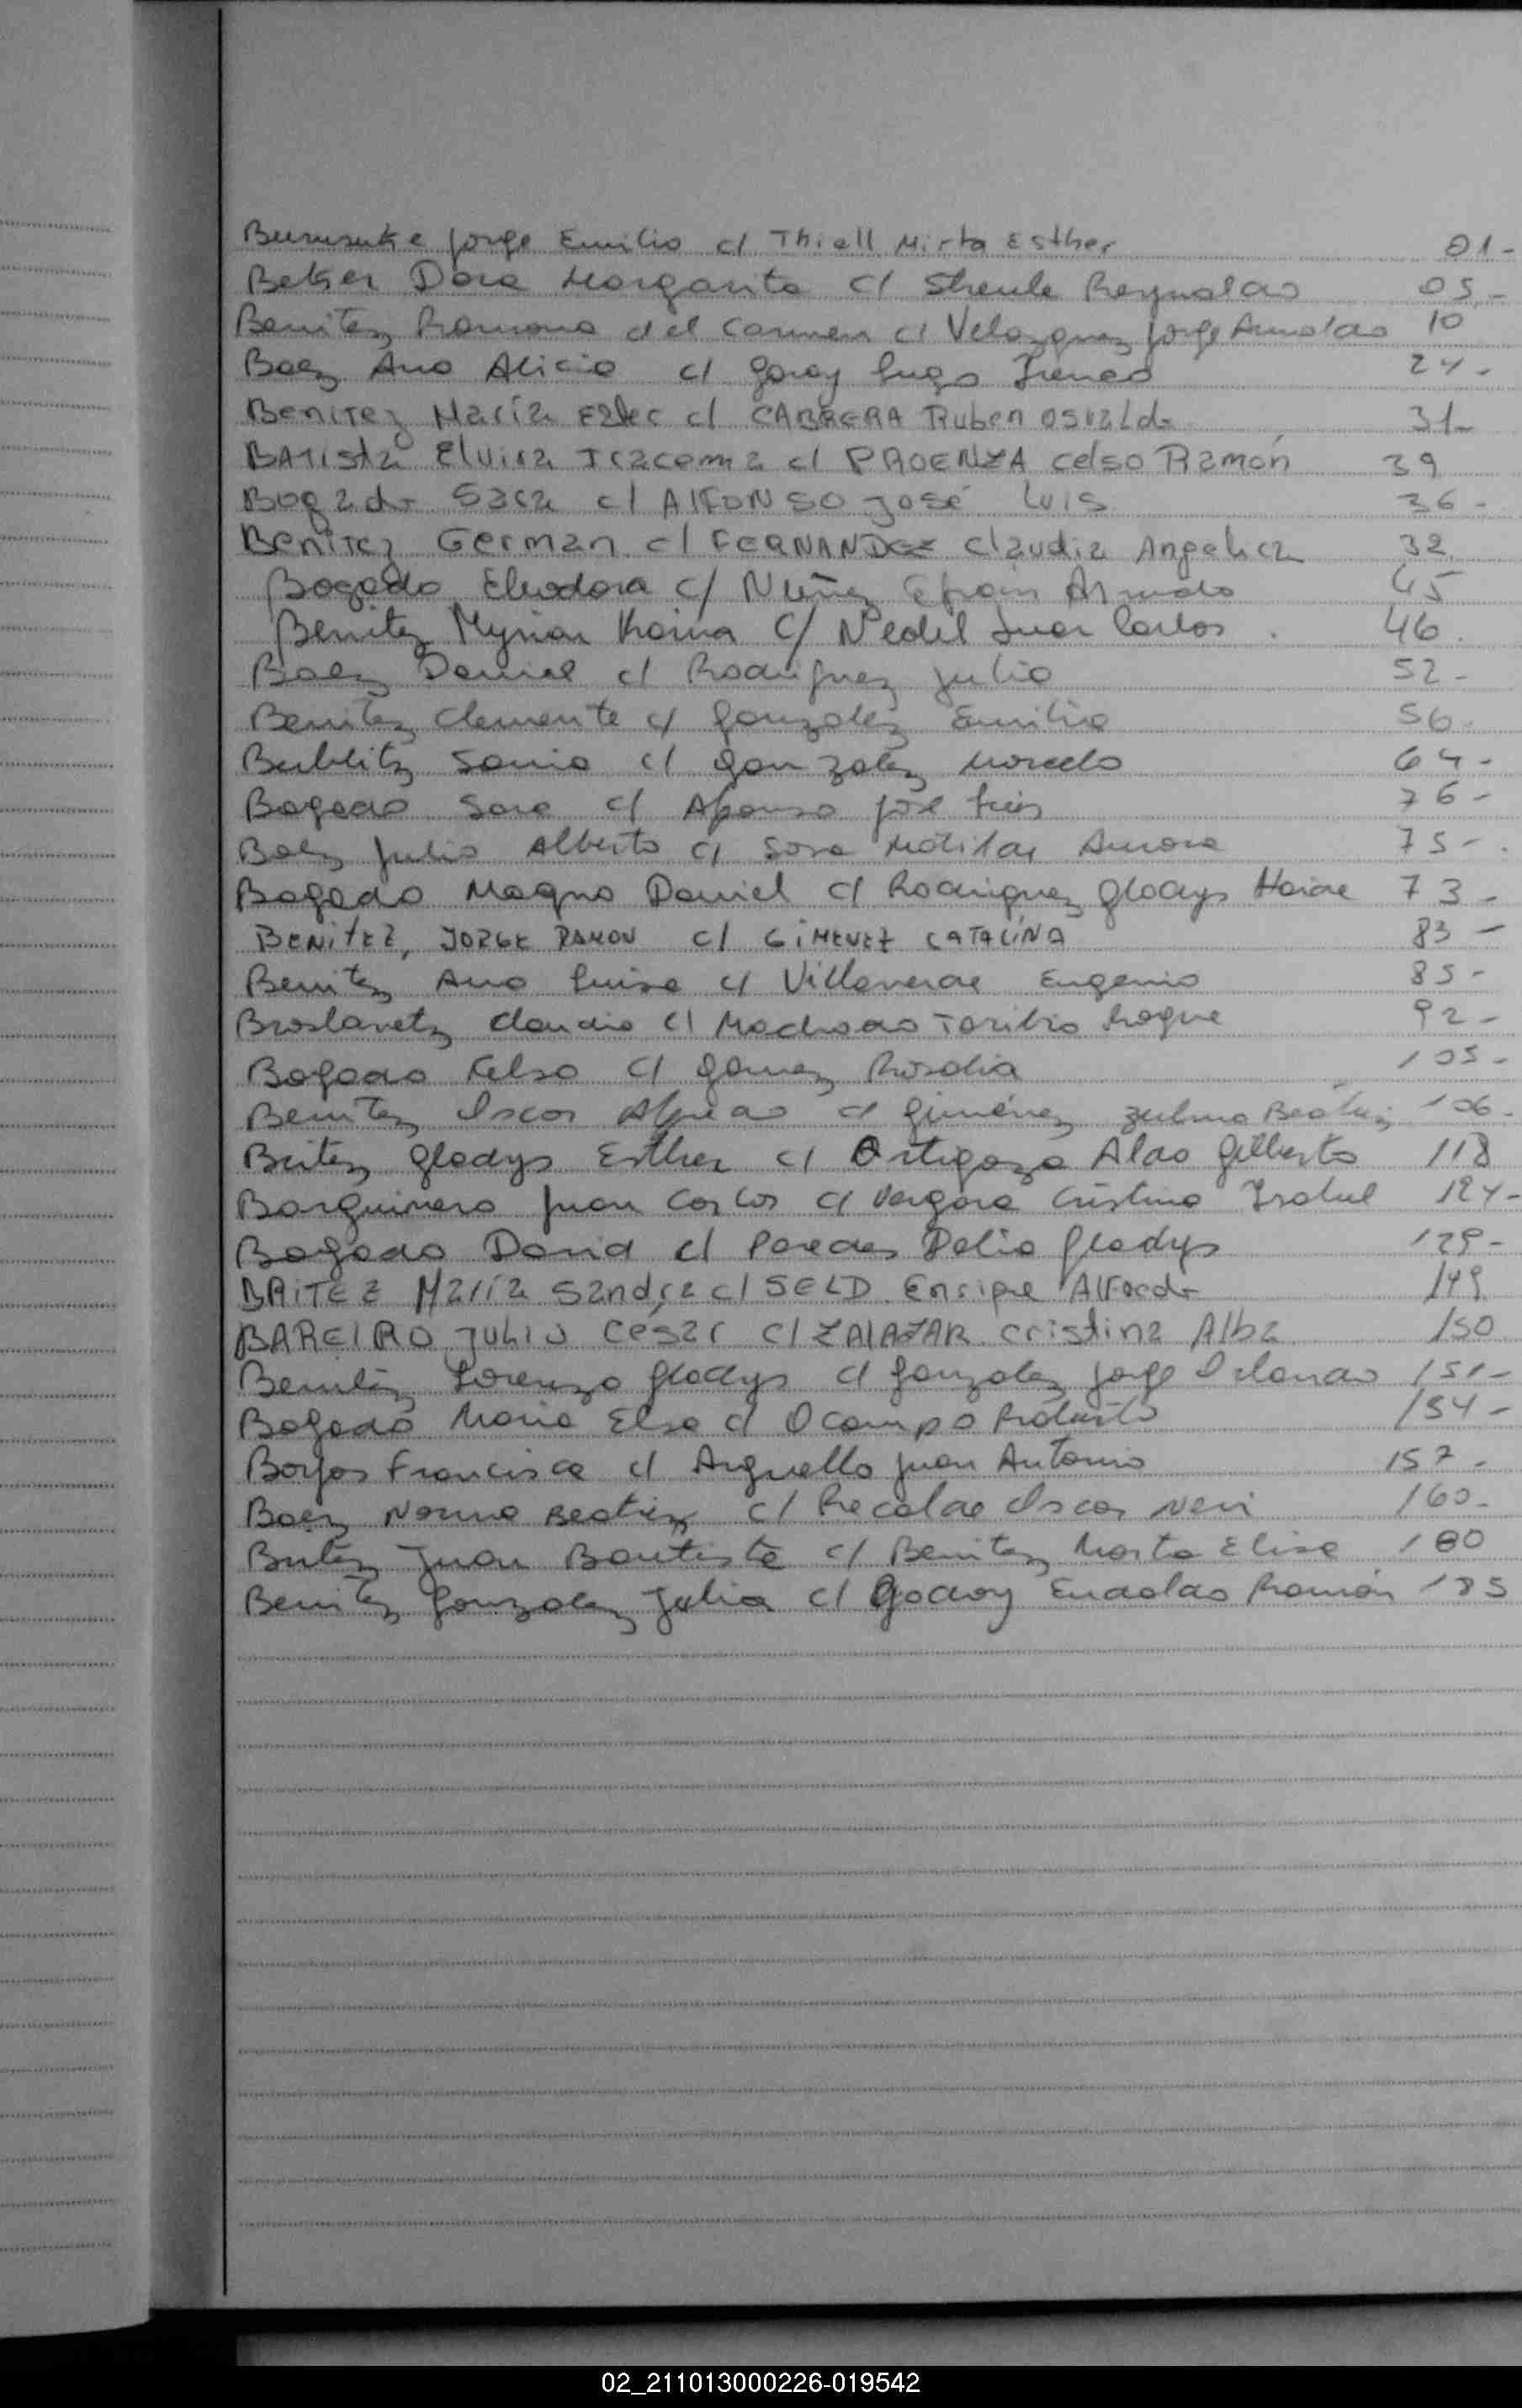 Jorge Emilio c/ Thiell Mirta Esther 01-
Betker Dora Margarita c/ Reynaldo 05-
Benitez Ramona del Carmen c/ Velazquez Jorge Arnoldo 10
Baez Ana Alicia c/ Garay Hugo Ireneo 24-
Benitez María Ester c/ CABRERA Ruben Osvaldo 31-
BATista Elvira Iracema c/ PROENZA Celso Ramón 39
Bogado Sara c/ AlFONSO José Luis 36-
Benitez German c/ FERNANDEZ Claudia Angelica 32
Bogado Eleodora c/ Nuñez Efrain Arnaldo 45
Benitez Myrian c/ Nedel Juan Carlos 46.
Baez Daniel c/ Rodriguez Julia 52-
Benitez Clemente c/ Gonzalez Emilia 56.
Bublitz Sonia c/ Gonzalez Marcelo 64-
Bogado Sara c/ Afonso José Luis 76-
Baez Julio Alberto c/ Sosa Matilde Aurora 75-.
Bogado Magno Daniel c/ Rodriguez Gladys Haide 73-
BENiTEZ, JORGE RAMON c/ GiMENEZ CATALiNA 83-
Benitez Ana Luisa c/ Villaverde Eugenio 85-
Broslavetz Claudia c/ Machado Toribio Roque 92-
Bogado Celso c/ Gomez Rosalia 105-
Benitez Oscar Alfredo c/ Giménez Zulma Beatriz 106-
Britez Gladys Esther c/ Ortigoza Aldo Gilberto 118
Barquinero Juan Carlos c/ Vergara Cristina Isabel 124-
Bogado David c/ Paredes Delia Gladys 129-
BRiTEZ María Sandra c/ SELD Enrique Alfredo 149
BAREIRO Julio César c/ ZALAZAR Cristina Alba 150
Benitez Lorenza Gladys c/ Gonzalez Jorge Orlando 151-
Bogado Maria Elsa c/ Ocampo Roberto 154-
Borjas Francisca c/ Arguello Juan Antonio 157-
Baez Norma Beatriz c/ Recalde Oscar Neri 160-
Britez Juan Bautista c/ Benitez Marta Elisa 180
Benitez Gonzalez Julia c/ Godoy Ramón 185
02_211013000226-019542